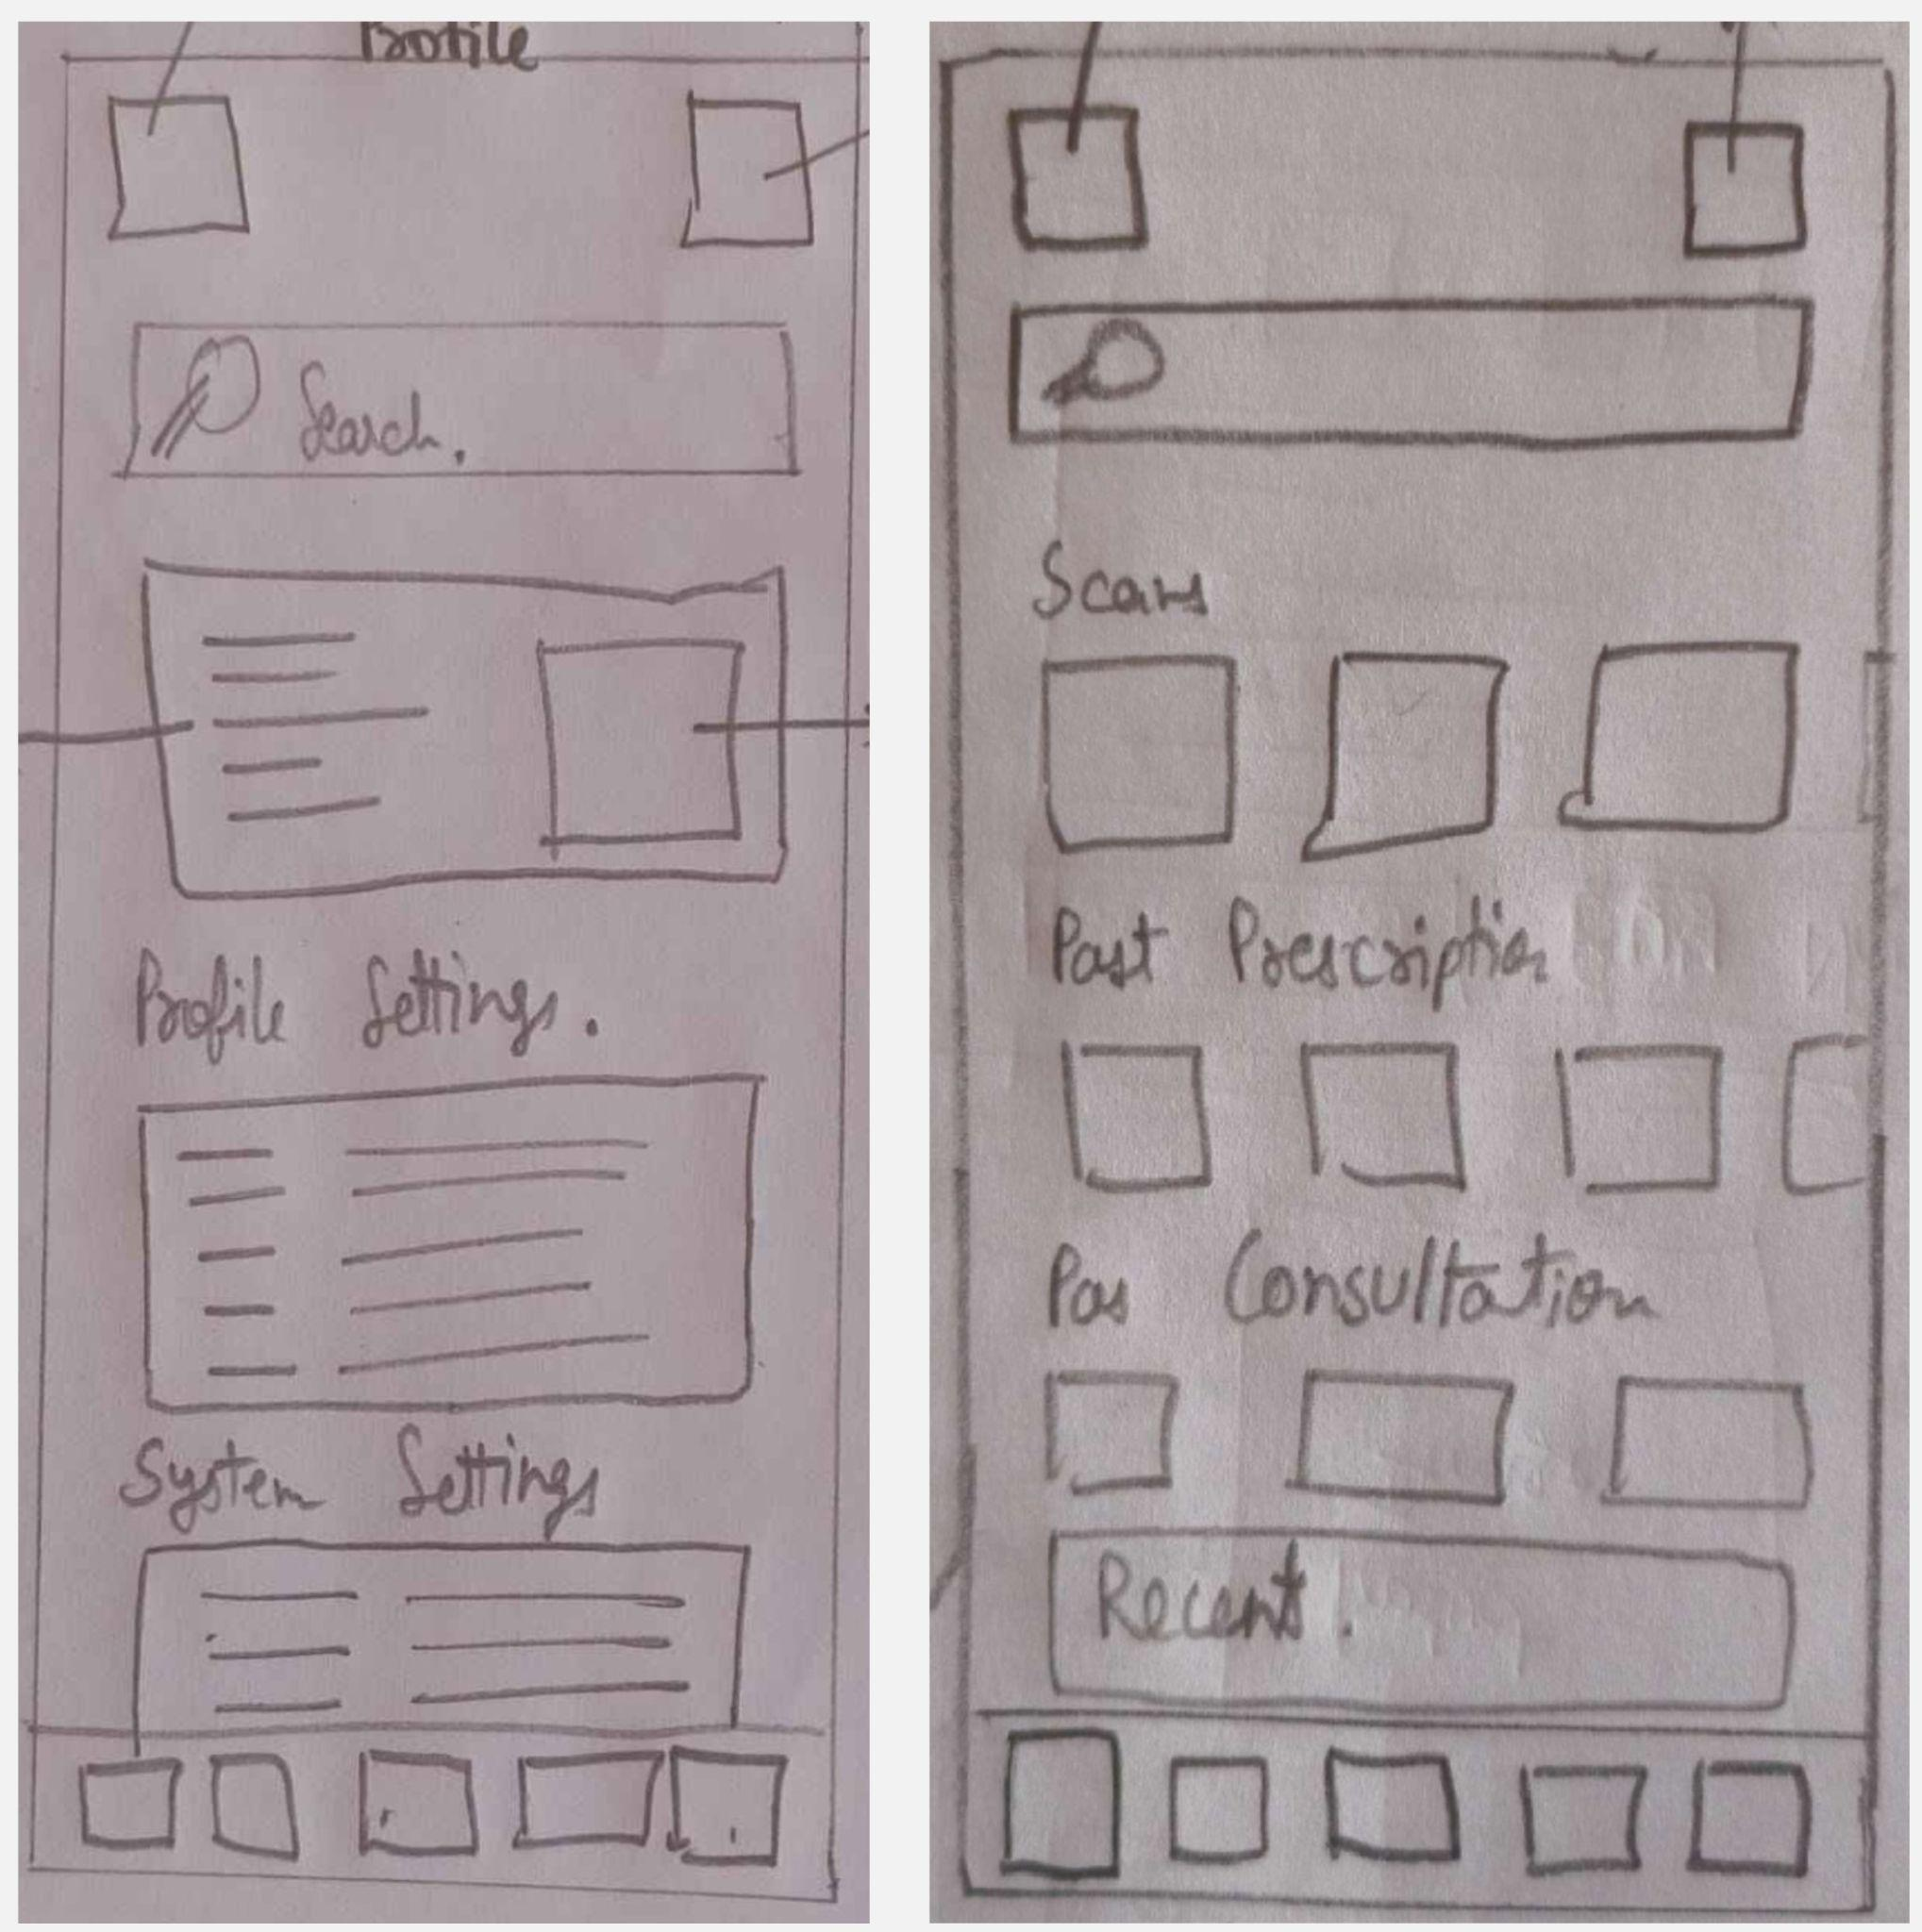 Profile
Search.
Profile Settings.
System Settings
Scans
Past Prescription
Pas Consultation
Recent.